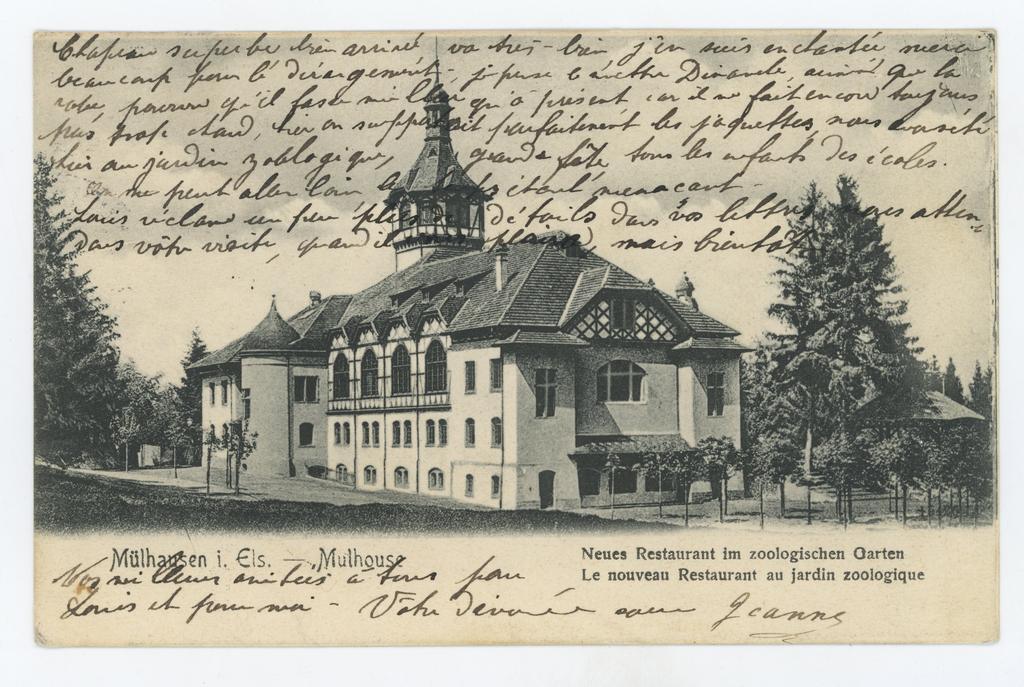 Chapeau superbe bien arrivé va très-bien j'en suis enchantée merci
beaucoup pour le dérangement, je pense le mettre Dimanche, ainsi que la
robe, pourvu qu'il fasse meilleur qu'à présent car il ne fait encore toujours
pas trop chaud, hier on supportait parfaitement les jaquettes, nous avons été
hier au jardin zoologique, grande fête tous les enfants des écoles.
on ne peut aller loin le temps étant menaçant.
Louis réclame un peu plus de détails dans vos lettres, nous atten
dons votre visite, quand il vous plaira, mais bientôt
Mülhausen i. Els. — Mulhouse
Neues Restaurant im zoologischen Garten
Le nouveau Restaurant au jardin zoologique
Vos meilleures amitiés à tous pour
Louis et pour moi - Votre dévouée soeur Jeanne